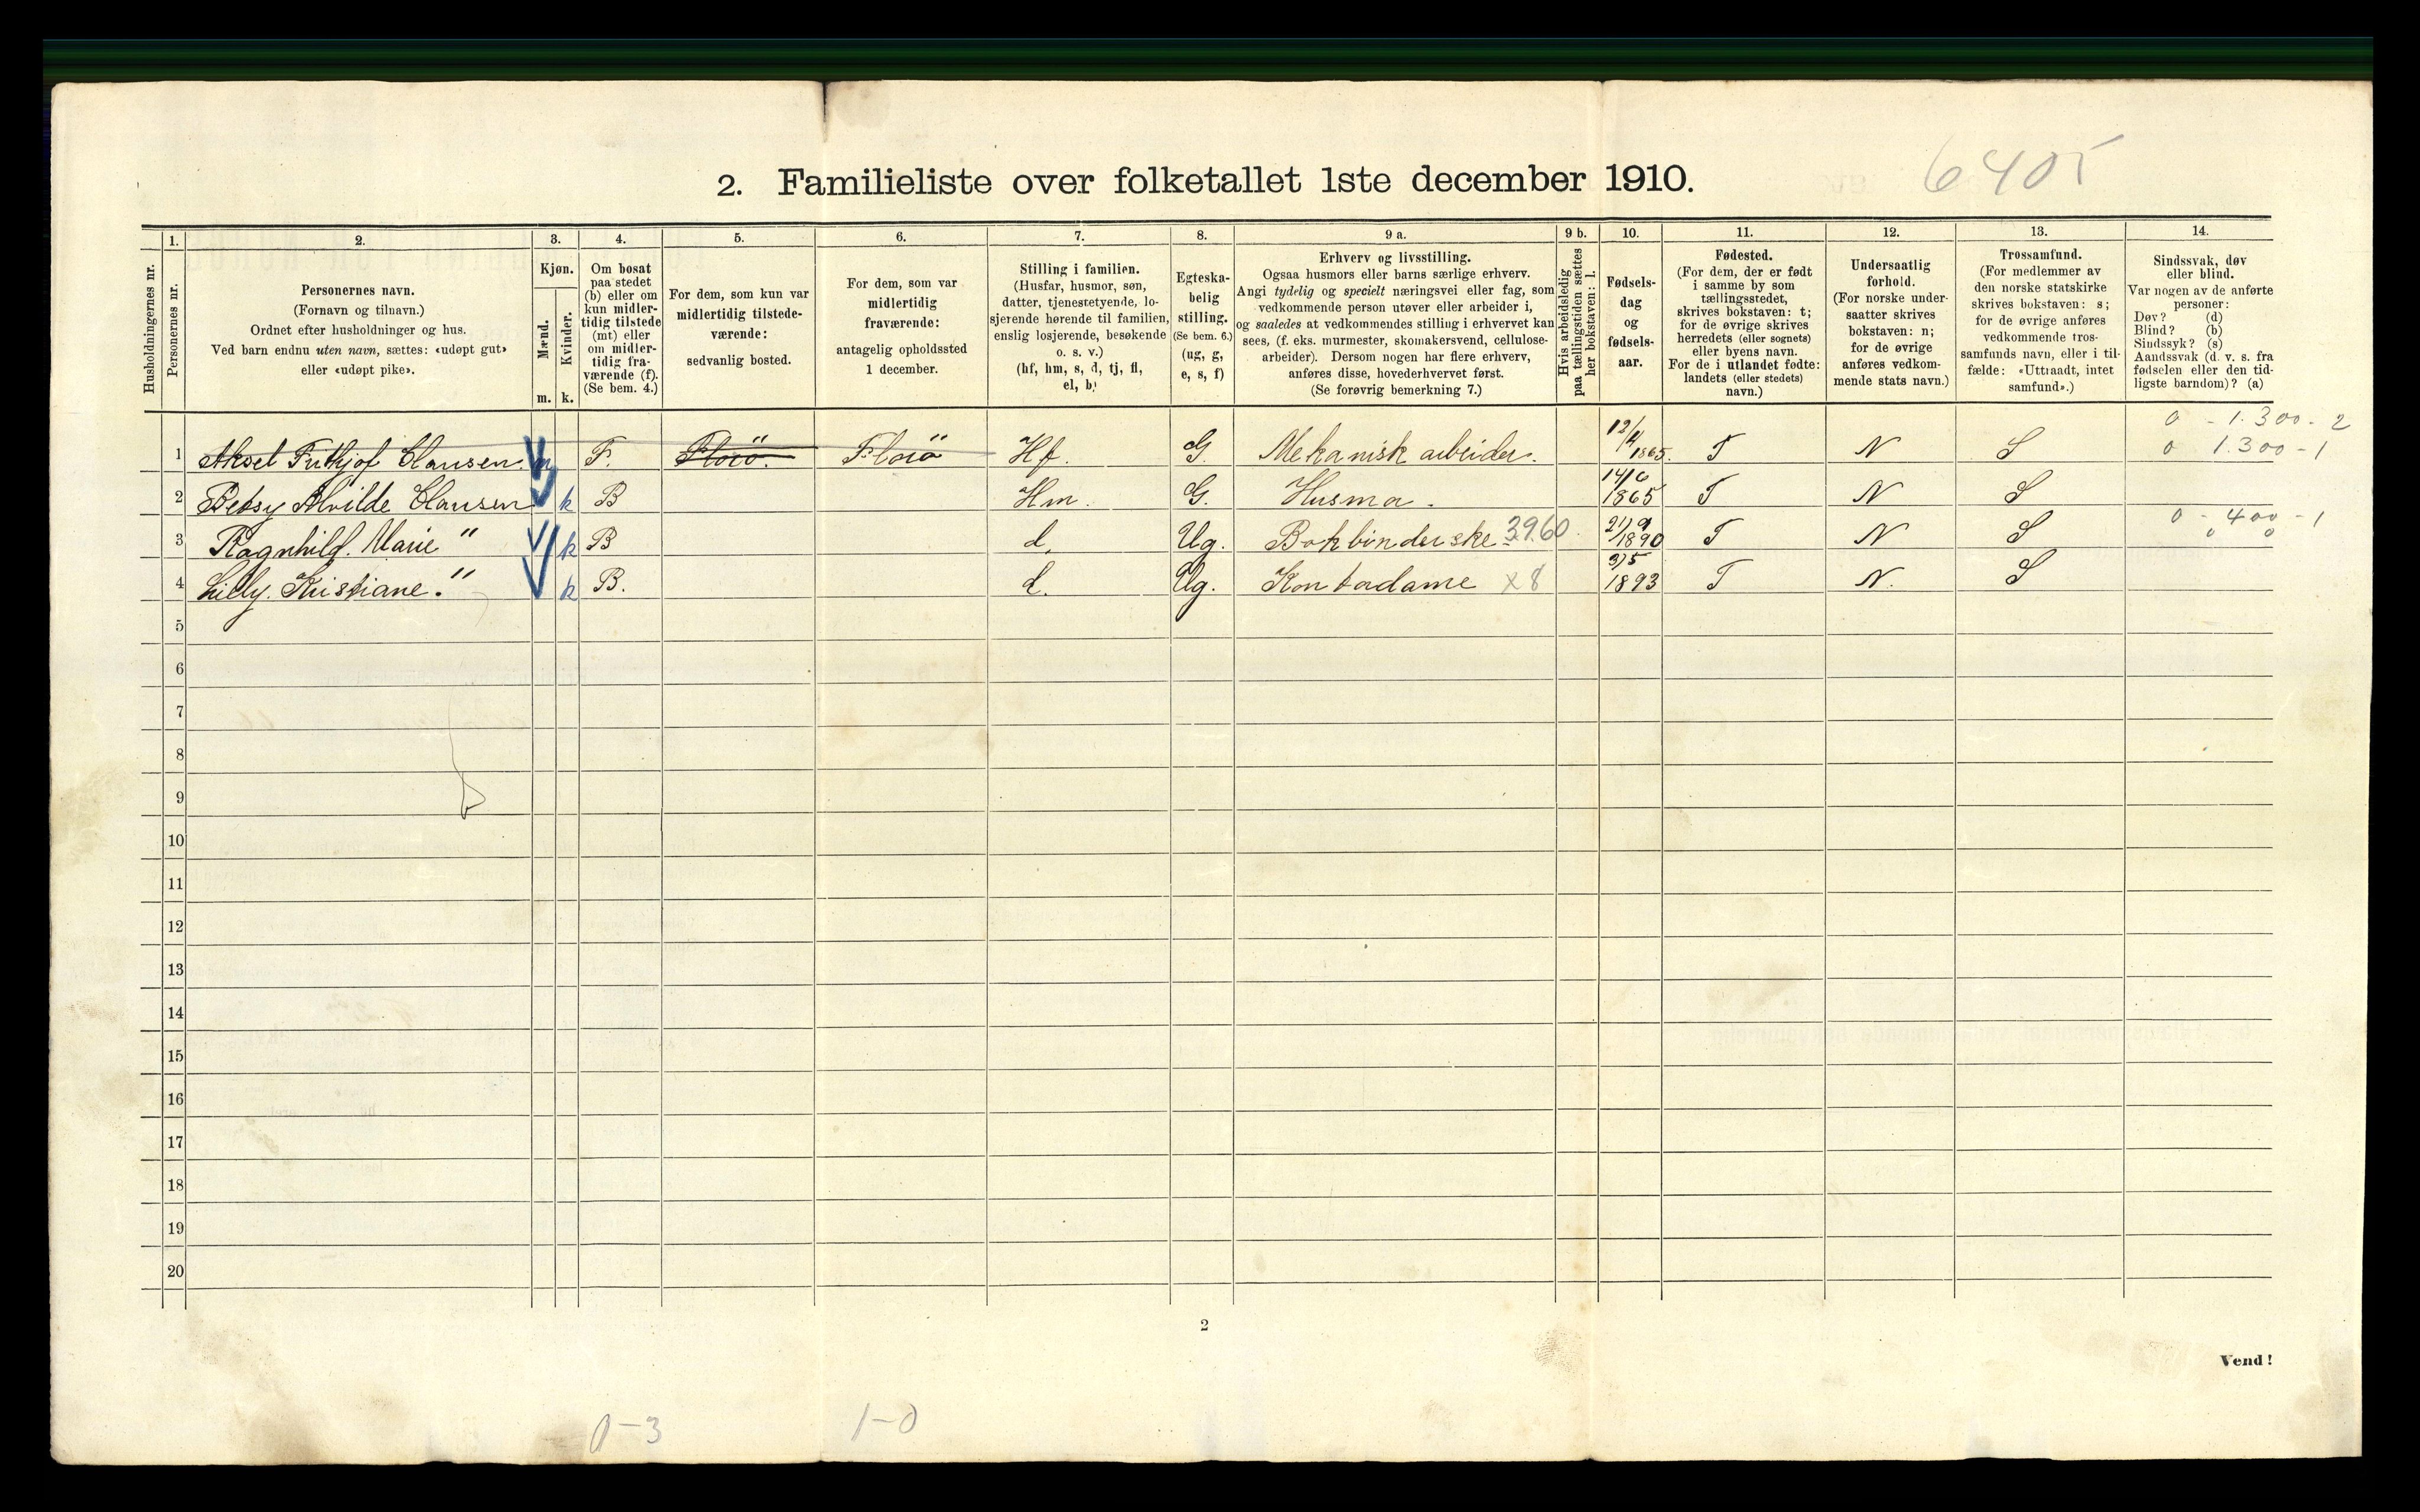 6405
2. Familieliste over folketallet 1ste december 1910.
Husholdningernes nr.
1.
Personernes nr.
2.
Personernes navn.
(Fornavn og tilnavn.)
Ordnet efter husholdninger og hus.
Ved barn endnu uten navn, sættes: «udøpt gut»
eller «udøpt pike».
3.
Kjøn.
Mænd.
Kvinder.
m. k.
4.
Om bosat
paa stedet
(b) eller om
kun midler-
tidig tilstede
(mt) eller
om midler-
tidig fra-
værende (f).
(Se bem. 4.)
5.
For dem, som kun var
midlertidig tilstede-
værende:
sedvanlig bosted.
6.
For dem, som var
midlertidig
fraværende:
antagelig opholdssted
1 december.
7.
Stilling i familien.
(Husfar, husmor, søn,
datter, tjenestetyende, lo-
sjerende hørende til familien,
enslig losjerende, besøkende
o. s. v.)
(hf, hm, s, d, tj, fl,
el, b)
8.
Egteska-
belig
stilling.
(Se bem. 6.)
(ug, g,
e, s, f)
9 a.
Erhverv og livsstilling.
Ogsaa husmors eller barns særlige erhverv.
Angi tydelig og specielt næringsvei eller fag, som
vedkommende person utøver eller arbeider i,
og saaledes at vedkommendes stilling i erhvervet kan
sees, (f. eks. murmester, skomakersvend, cellulose-
arbeider). Dersom nogen har flere erhverv,
anføres disse, hovederhvervet først.
(Se forøvrig bemerkning 7.)
9 b.
Hvis arbeidsledig
paa tællingstiden sættes
her bokstaven: l.
10.
Fødsels-
dag
og
fødsels-
aar.
11.
Fødested.
(For dem, der er født
i samme by som
tællingsstedet,
skrives bokstaven: t;
for de øvrige skrives
herredets (eller sognets)
eller byens navn.
For de i utlandet fødte:
landets (eller stedets)
navn.)
12.
Undersaatlig
forhold.
(For norske under-
saatter skrives
bokstaven: n;
for de øvrige
anføres vedkom-
mende stats navn.)
13.
Trossamfund.
(For medlemmer av
den norske statskirke
skrives bokstaven: s;
for de øvrige anføres
vedkommende tros-
samfunds navn, eller i til-
fælde: «Uttraadt, intet
samfund».)
14.
Sindssvak, døv
eller blind.
Var nogen av de anførte
personer:
Døv? (d)
Blind? (b)
Sindssyk? (s)
Aandssvak (d. v. s. fra
fødselen eller den tid-
ligste barndom)? (a)
0 - 1.300 - 2
1 Aksel Frithjof Clausen. m F. Florö. Florö Hf. G. Mekanisk arbeider. 12/4 1865. T N S 0 1.300 - 1
2 Betsy Alvilde Clausen k B Hm. G. Husmor. 14/6 1865 T N S
3 Ragnhild. Marie " k B d. Ug. Bokbinderske 3960. 21/9 1890 T N S 0 - 400 - 1
0 0
4 Lilly. Kristiane. " k B. d. Ug. Kontordame x8 3/5 1893 T N. S
5
6
7
8
9
10
11
12
13
14
15
16
17
18
19
20
2
Vend!
0-3 1-0